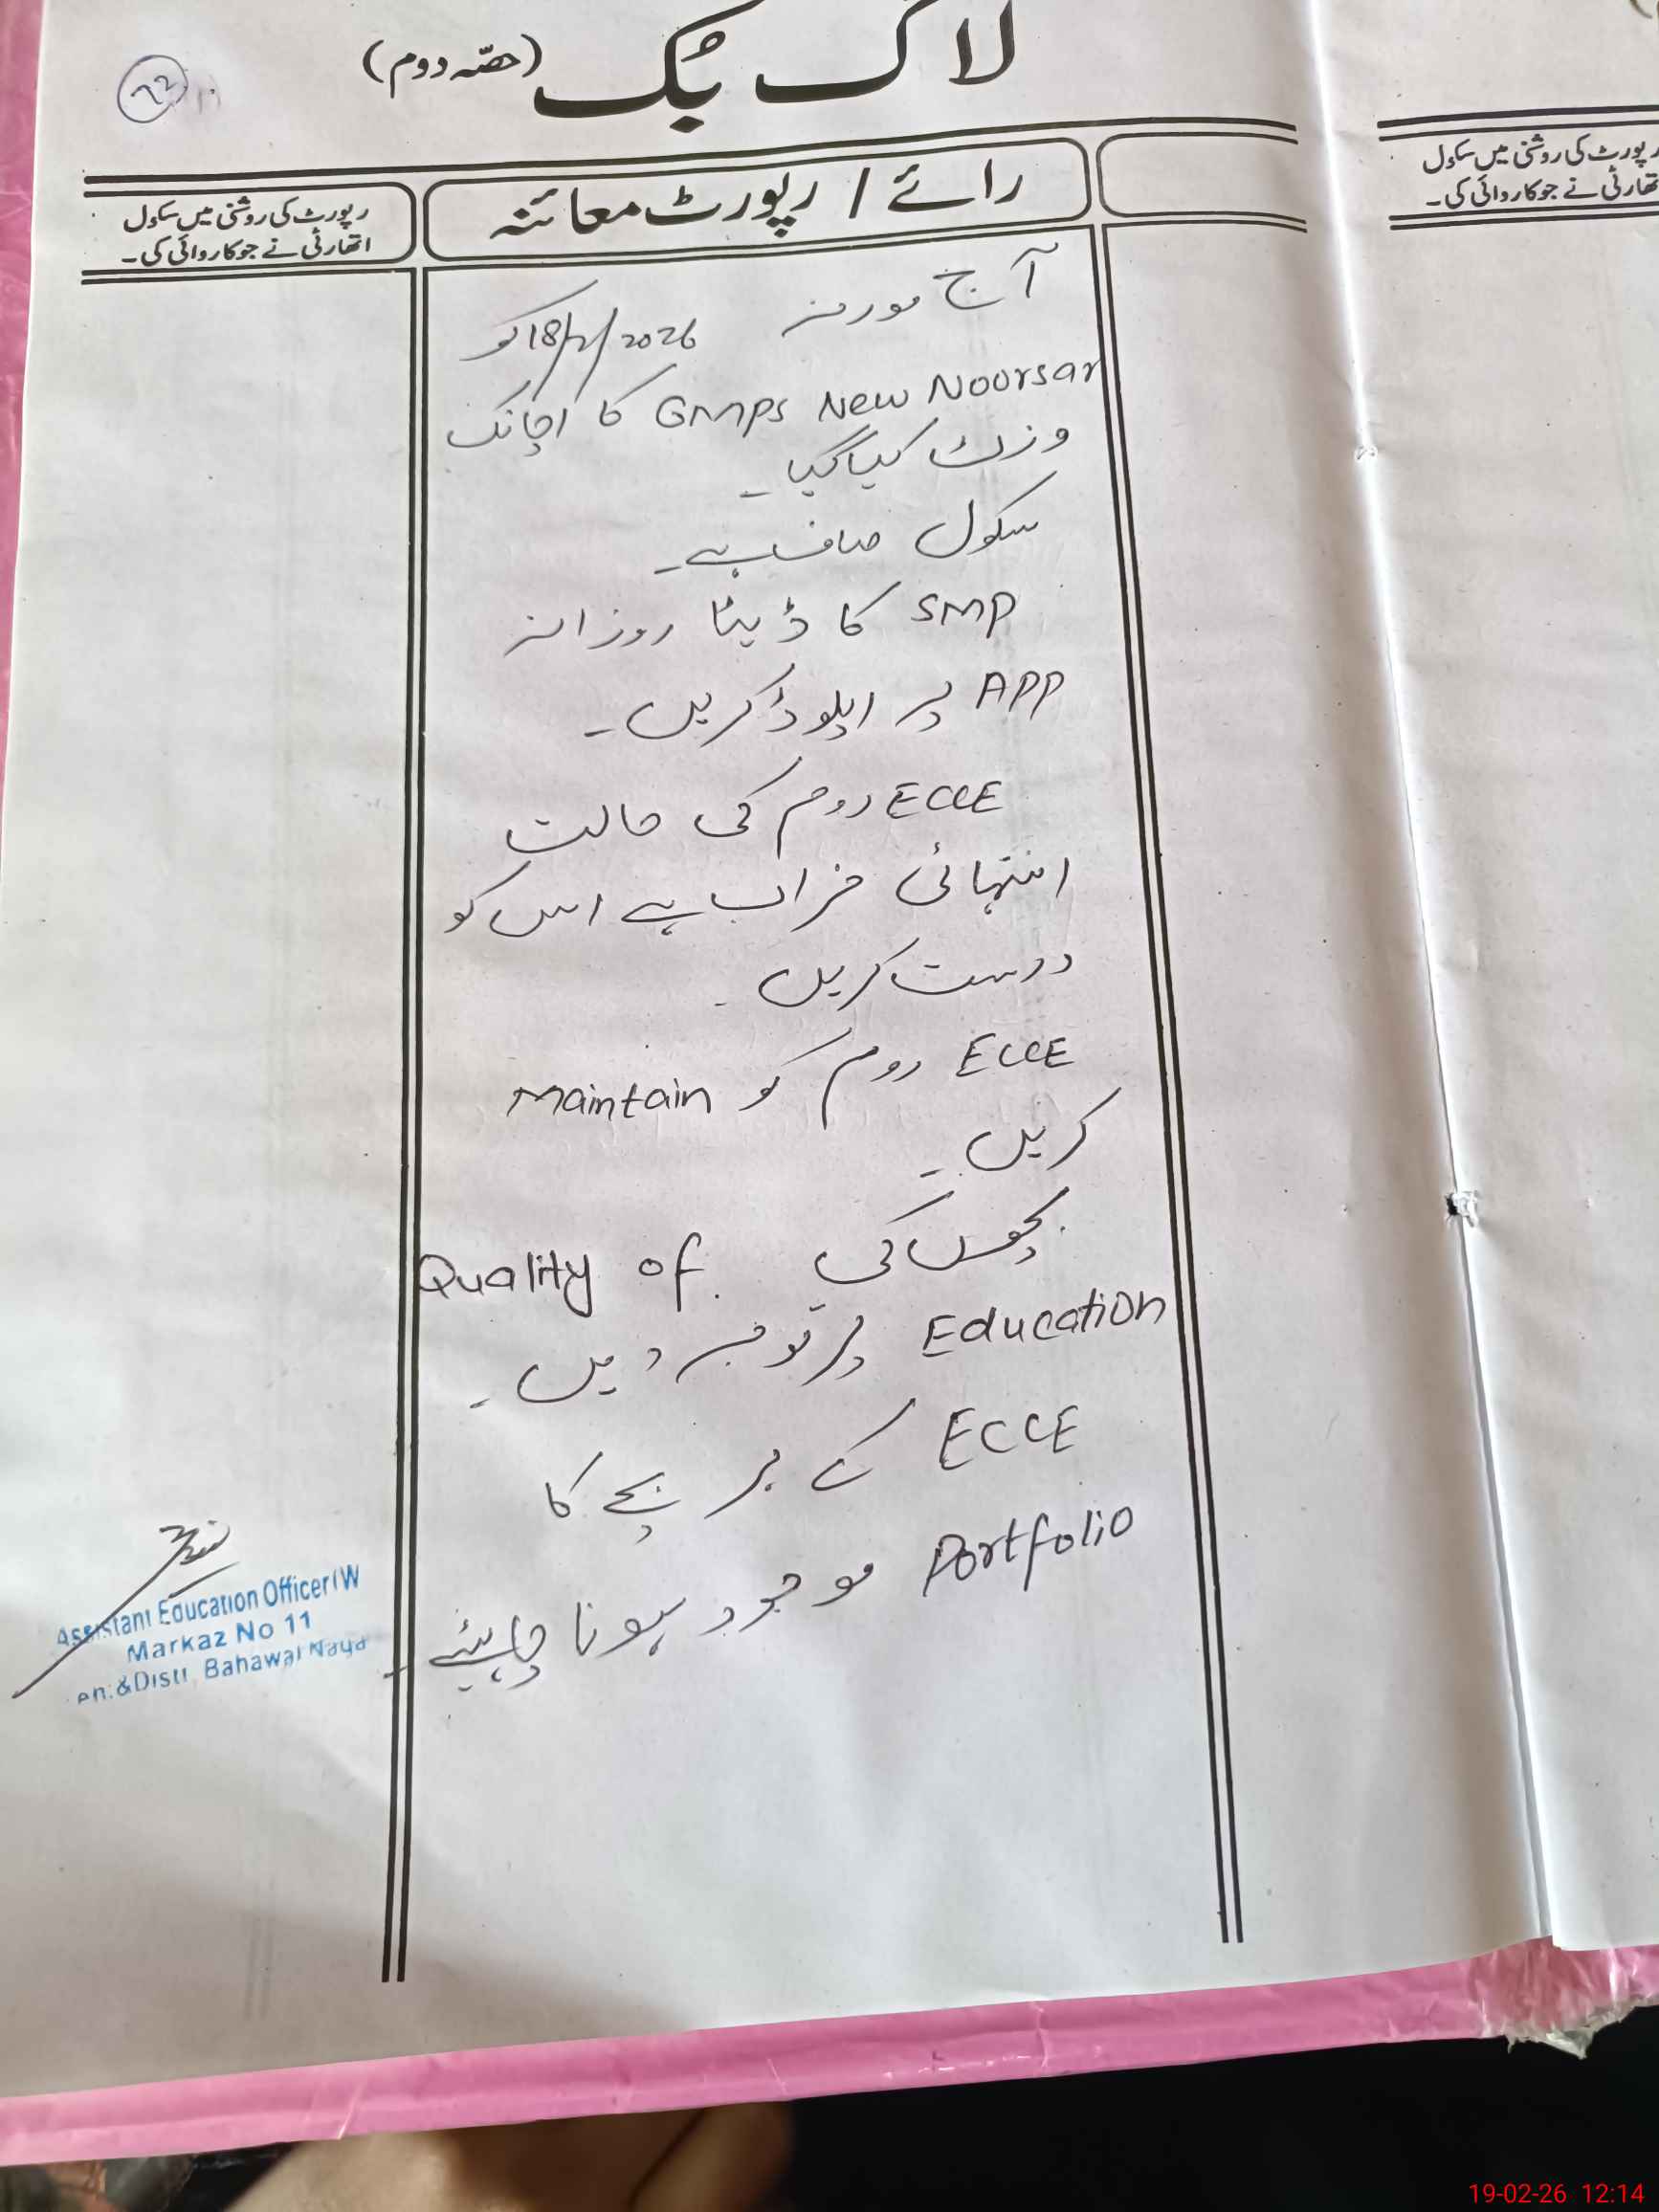 لاگ بُک (حصّہ دوم)
22
رائے / رپورٹ معائنہ
رپورٹ کی روشنی میں سکول
اتھارٹی نے جو کاروائی کی۔
آج مورخہ 18/2/2026 کو
GMPS New Noorsar کا اچانک
وزٹ کیا گیا۔
سکول صاف ہے۔
SMP کا ڈیٹا روزانہ
APP پر اپلوڈ کریں۔
ECCE روم کی حالت
انتہائی خراب ہے اس کو
درست کریں۔
ECCE روم کو Maintain
کریں۔
بچوں کی Quality of
Education پر توجہ دیں۔
ECCE کے ہر بچے کا
Portfolio موجود ہونا چاہیئے۔
Assistant Education Officer (W
Markaz No 11
en:&Distt, Bahawal Naga
رپورٹ کی روشنی میں سکول
تھارٹی نے جو کاروائی کی۔
19-02-26 12:14